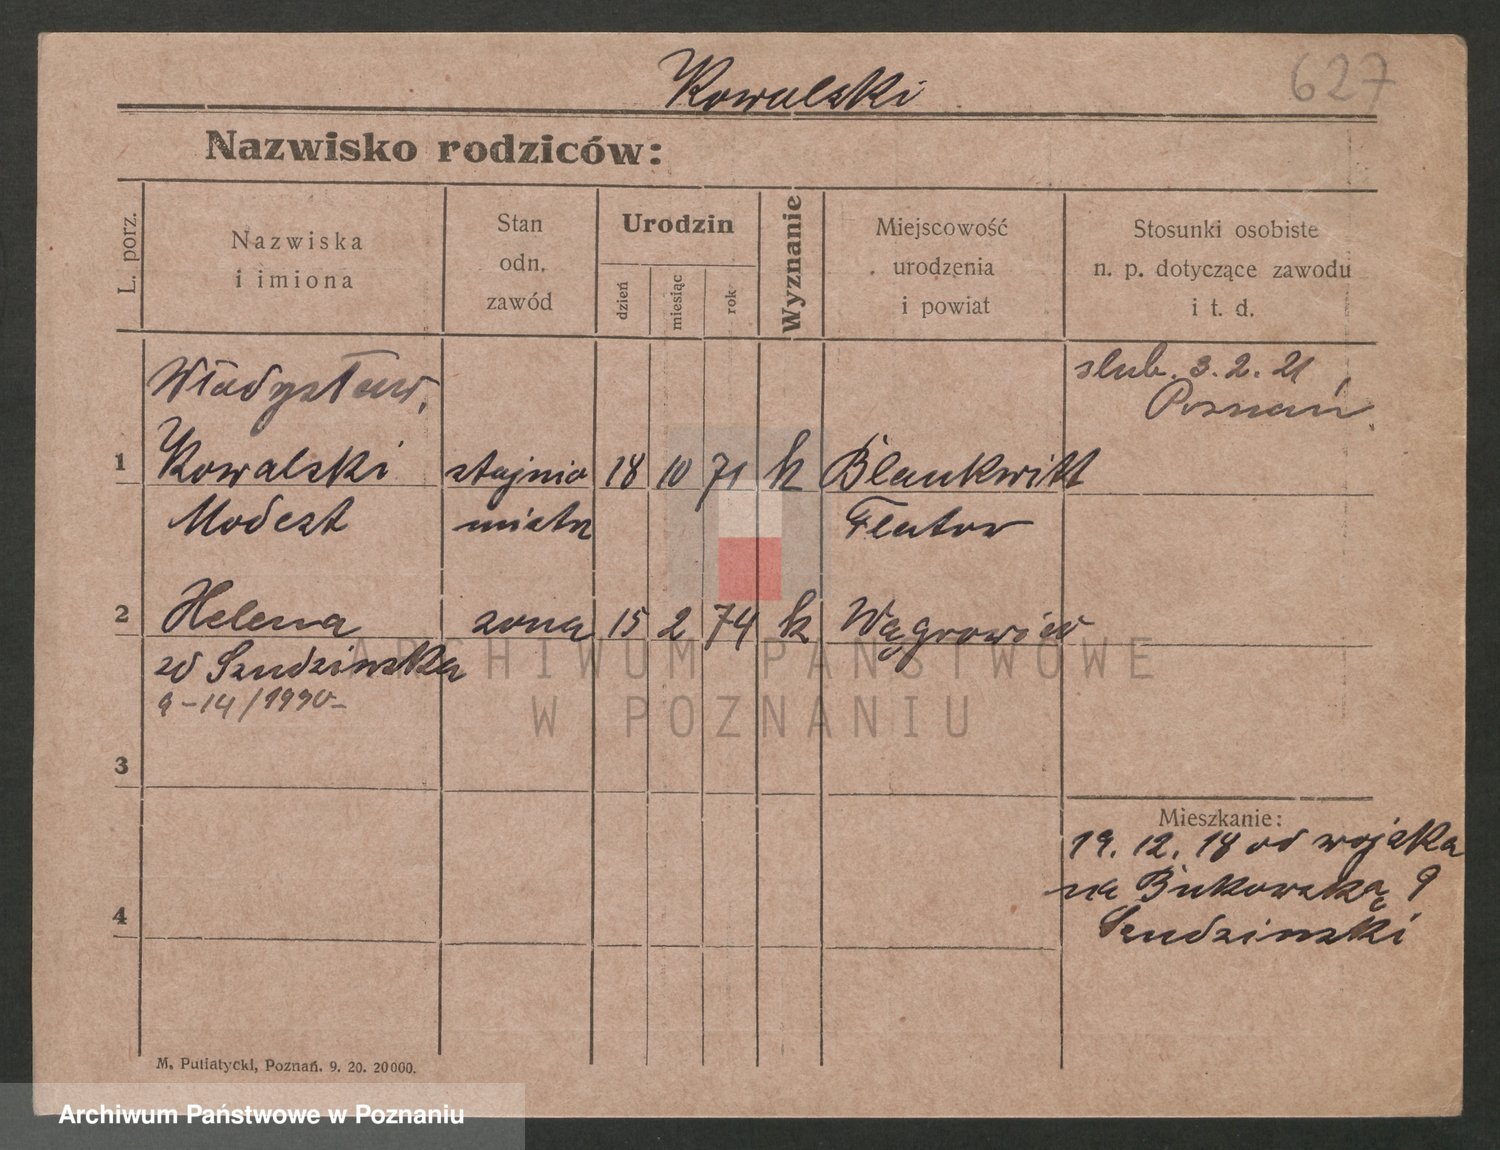 Kowalski
627
Nazwisko rodziców:
L. porz.
Nazwiska
i imiona
Stan
odn.
zawód
Urodzin
dzień
miesiąc
rok
Wyznanie
Miejscowość
urodzenia
i powiat
Stosunki osobiste
n. p. dotyczące zawodu
i t. d.
Władysław,
slub. 3. 2. 21
Poznań
1 Kowalski 18 10 71 k Blankwitt
Modest Flatow
2 Helena zona 15 2 74 k Wągrowiec
zd Szudzinska
3
4
Mieszkanie:
19. 12. 18 od wojska
na Bukowską 9
Szudzinski
M. Putiatycki, Poznań. 9. 20. 20000.
ARCHIWUM PAŃSTWOWE
W POZNANIU
Archiwum Państwowe w Poznaniu